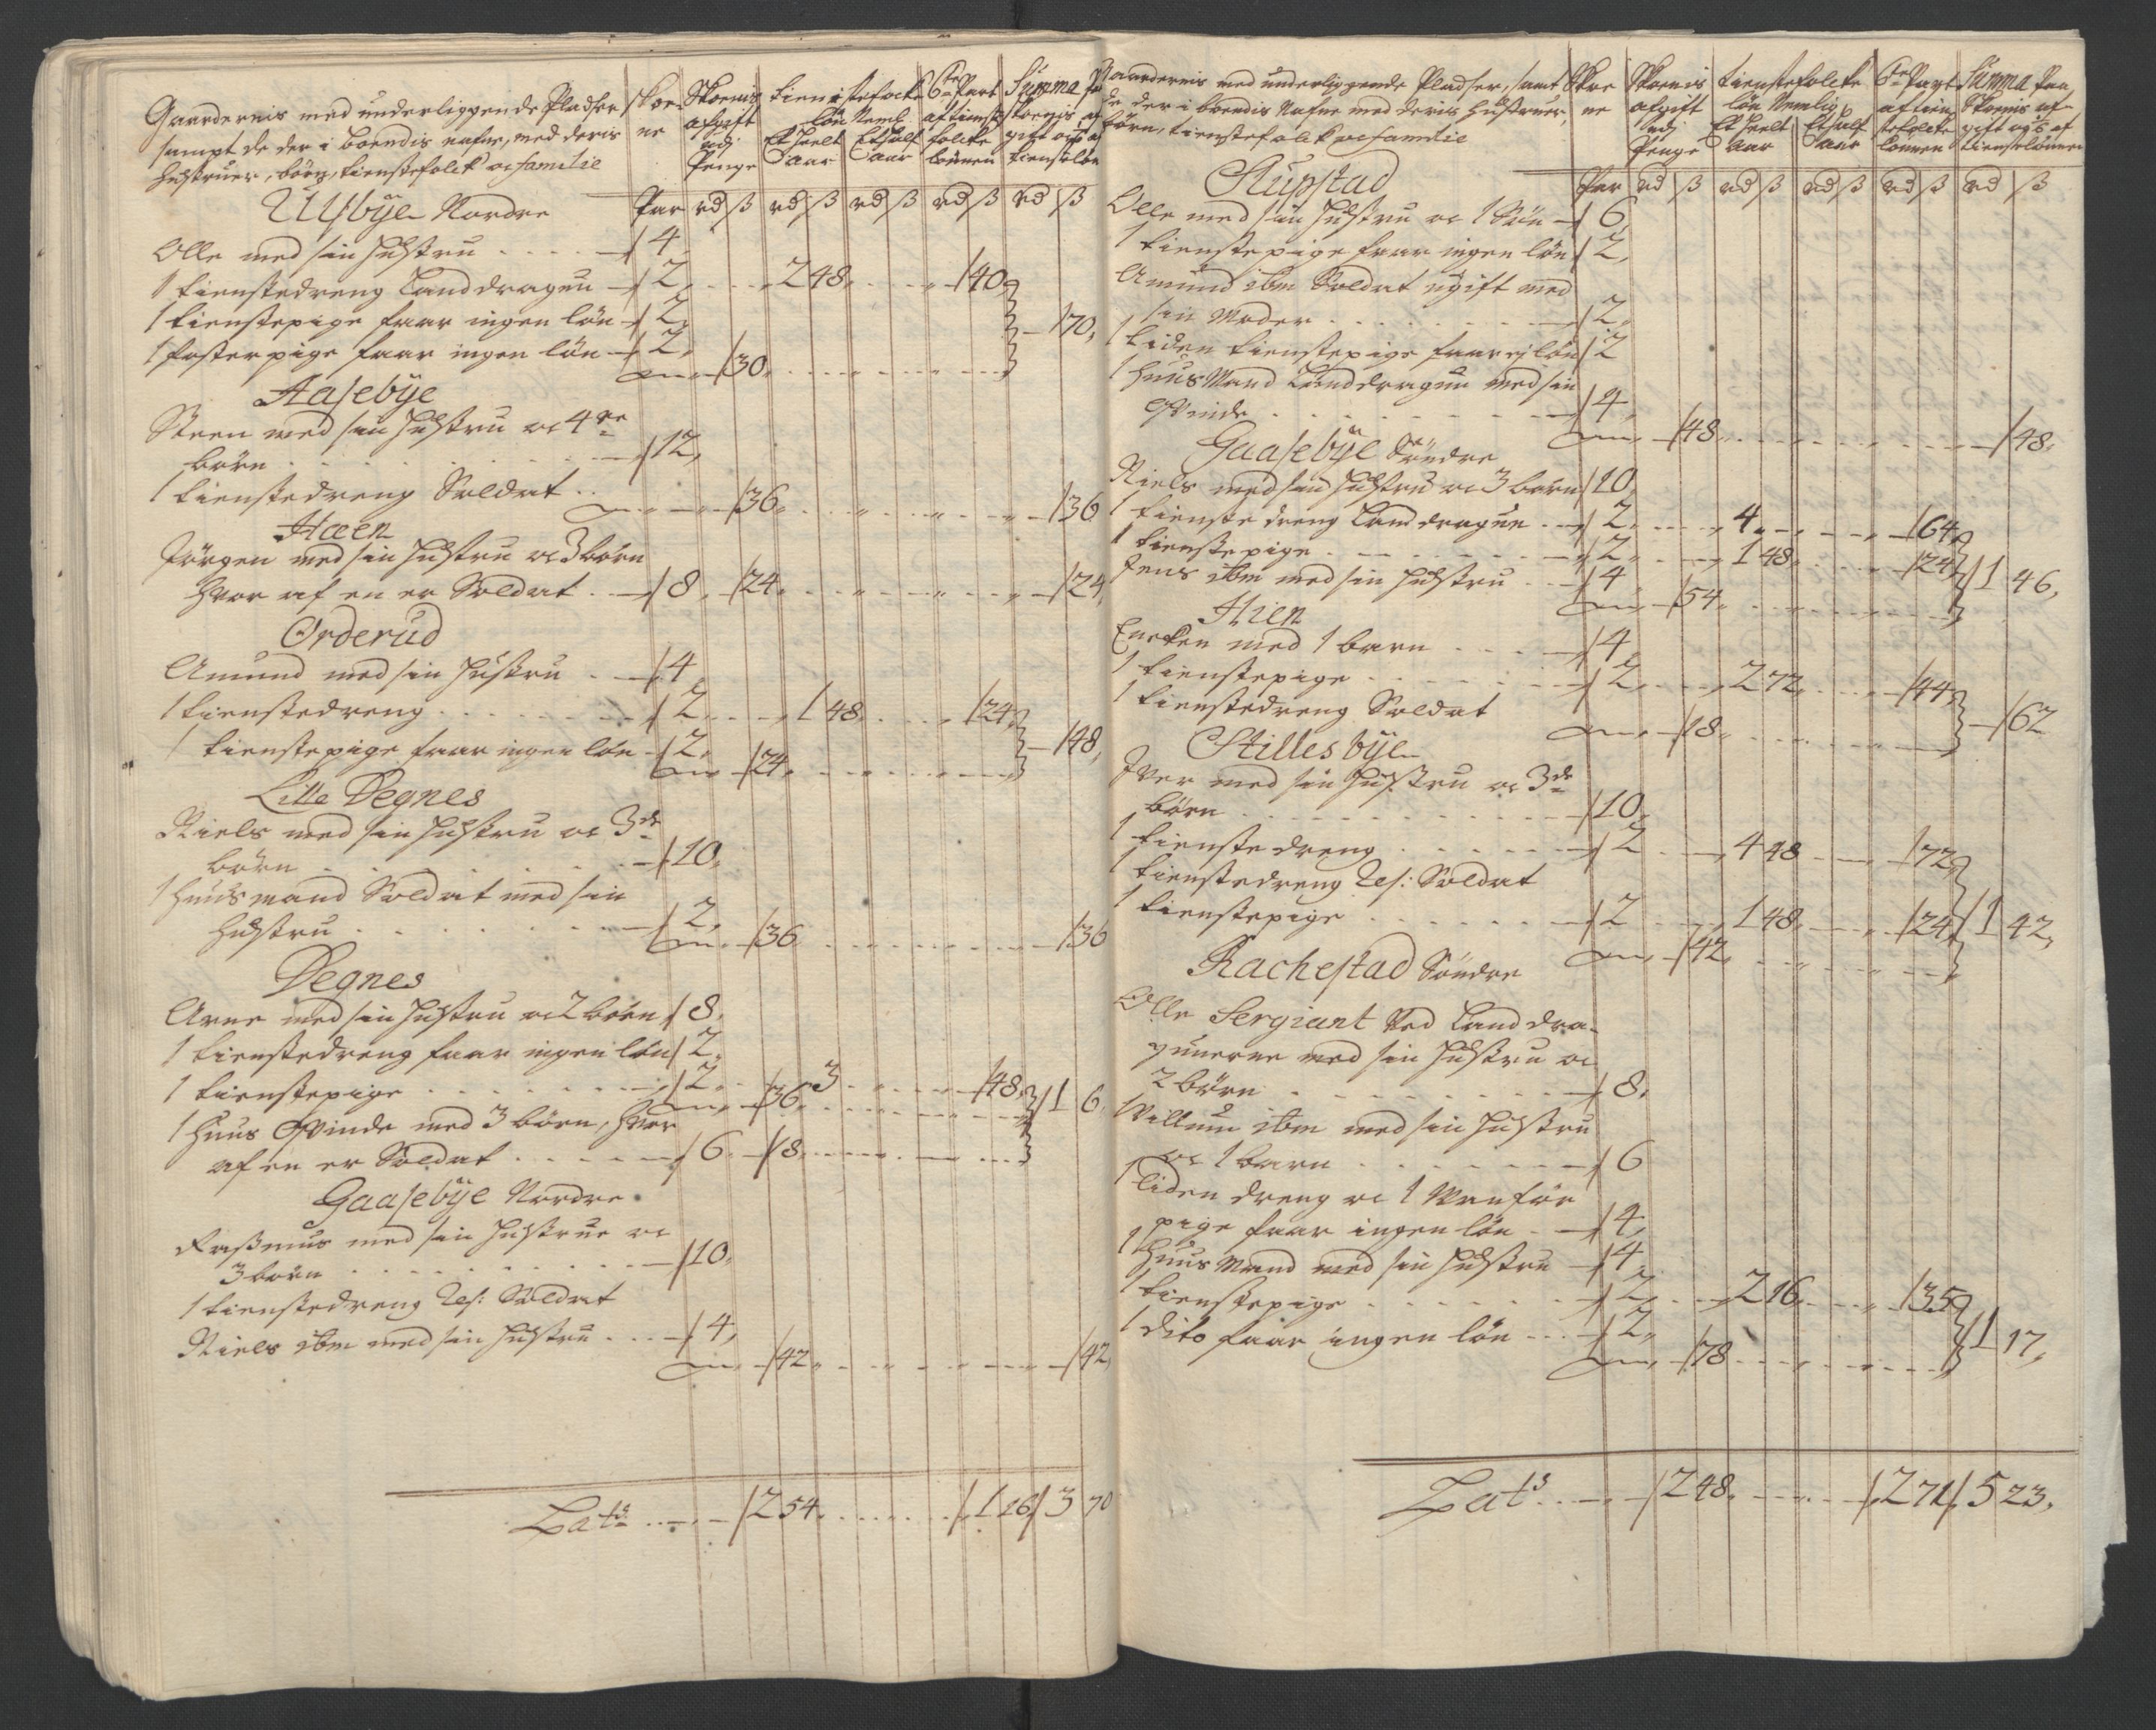 Gaardernis med underliggende Pladser
sampt de der i boendis nafne, med deris
Hustruer, börn, tienstefolck oc familie
Skoe-
ne
Skoenis
afgift
udj
Penge
tienistefolck
lön Neml:
Et heelt
Aar
Et half
Aar
6te Part
af tienste
folcke
lönnen
Summa Paa
Skoenis af
gift oc 1/6 af
tienstelön
Ulsbÿe Nordre Par rd ß rd ß rd ß rd ß rd ß
Olle med sin Hustru . . . . 4
1 tienstedreng Landdragun 2 . . 2 48 . . 40
1 tienstepige faar ingen lön 2 70
1 fosterpige faar ingen lön 2 30
Aasebÿe
Steen med sin Hustru oc 4re
börn . . . 12
1 tienstedreng Soldat . . 36 . . 36
Haen
Jörgen med sin Hustru oc 3 börn
hvor af en er Soldat . . 8 24 . . 24
Orderud
Amund med sin Hustru . . 4
1 tienstedreng . . . 2 . . 1 48 . . 24
1 tienstepige faar ingen lön 2 24 . . 48
Lille Degnes
Niels med sin Hustru oc 3de
börn . . . 10
1 Huusmand Soldat med sin
Hustru . . . 2 36 . . 36
Degnes
Arne med sin Hustru oc 2 börn 8
1 tienstedreng faar ingen lön 2
1 tienstepige . . . 2 36 3 . . 48 1 6
1 Huus Qvinde med 3 börn, hvor
af en er Soldat . . . 6 18
Gaasebÿe Nordre
Rasmus med sin Hustrue oc
3 börn . . . 10
1 tienstedreng Res: Soldat
Niels ibm med sin Hustru . . . 4
42 . . 42
Lats . . . 2 54 . . . 1 16 3 70
Gaardernis med underliggende Pladser, samt
de der i boendis Nafne med deris Hustruer,
börn, tienstefolck oc familie
Skoe
ne
Skoenis
afgift
udj
Penge
tienstefolcke
lön Nemlig
Et heelt
Aar
Et half
Aar
6te Part
af tien
stefolcke
lönnen
Summa Paa
Skoenis af-
gift og 1/6 af
tienstelönnen
Par rd ß rd ß rd ß rd ß rd ß
Rupstad
Olle med sin Hustru oc 1 Sön 6
1 tienstepige faar ingen lön 2
Amund ibm Soldat ugift med
sin Moder . . . 2
1 liden tienstepige faar ej lön 2
1 Huus Mand Landdragun med sin
Qvinde . . . 4
48 . . 48
Gaasebÿe Söndre
Niels med sin Hustru oc 3 börn 10
1 tienstedreng Landdragun . . 2 . . 4 . . 64
1 tienstepige . . . 2 . . 1 48 . . 24 1 46
Jens ibm med sin Hustru . . 4 54
Hien
Encken med 1 barn . . . 4
1 tienstepige . . . 2 . . 2 72 . . 44
1 tienstedreng Soldat
18 . . 62
Stillesbÿe
Iver med sin Hustru oc 3de
börn . . . 10
1 tienstedreng . . . 2 . . 4 48 . . 72
1 tienstedreng Res: Soldat
1 tienstepige . . . 2 . . 1 48 . . 24 1 42
42
Rachestad Söndre
Olle Sergiant Ved Landdra-
gunerne med sin Hustru oc
2 börn . . . 8
Villum ibm med sin Hustru
oc 1 barn . . . 6
1 liden dreng oc 1 Vanför
pige faar ingen lön . . 4
1 Huus Mand med sin Hustru 4
1 tienstepige . . . 2 . . 2 16 . . 35
1 dito faar ingen lön . . . 2 1 17
78
Lats . . . 2 48 . . . 2 71 5 23